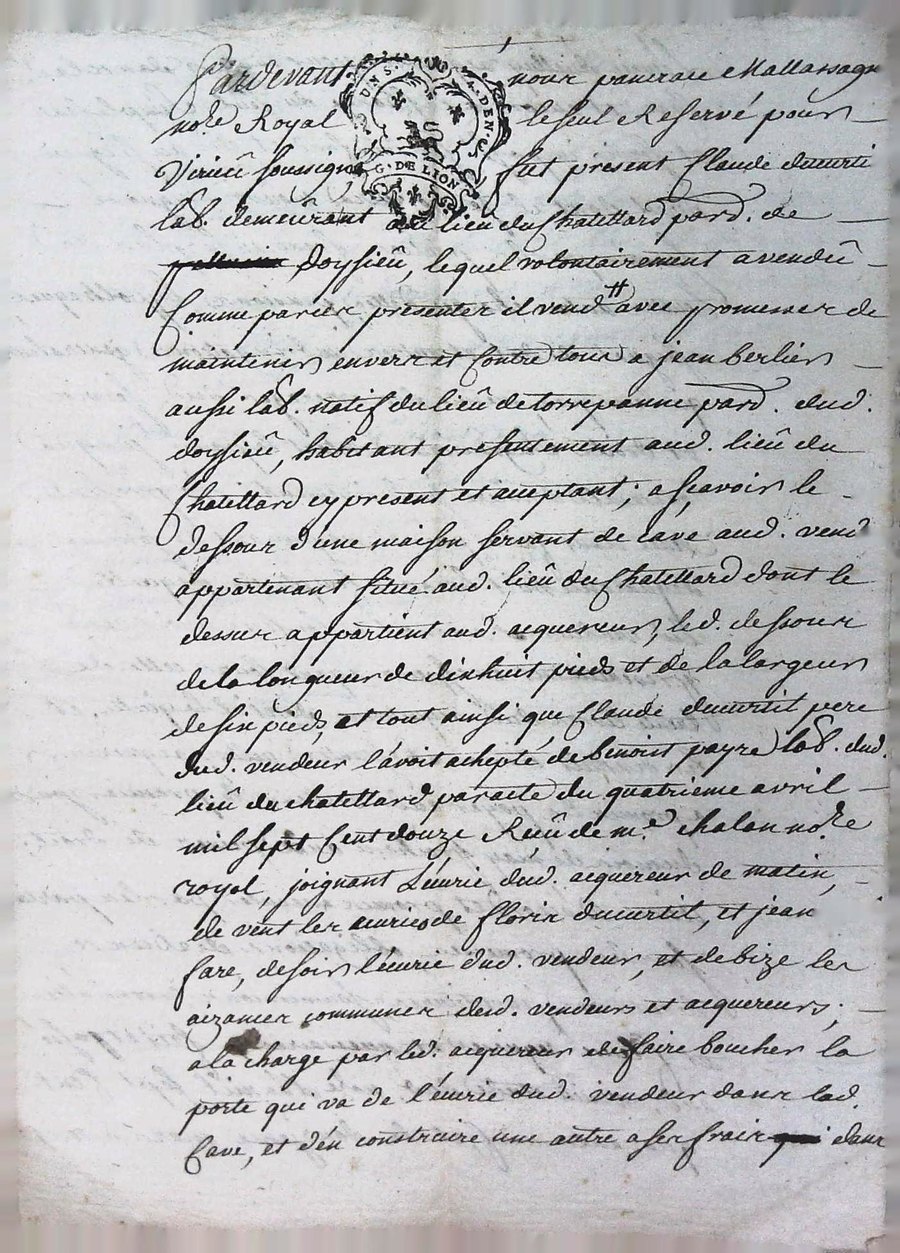 Pardevant nous pancrace Mallassagne
no.re Royal le seul Reservé pour
Virieû soussigné, fut present Claude ducurti
lab. demeurant au lieu du Chatellard par.d de
doyssieû, lequel volontairement a vendû
Comme par ces presentes il vend # avec promesses de
maintenir envers et Contre tous a jean berlier
aussi lab. natif du lieû de torrepanne par.d dud.
doyssieû, habitant presentement aud. lieû du
Chatellard cy present et acceptant; a sçavoir le
dessous d'une maison servant de cave aud. vend
appartenant situé aud. lieû du Chatellard dont le
dessus appartient aud. acquereur, led. dessous
de la longueur de dixhuit pieds et de la largeur
de six pieds, et tout ainsi que Claude ducurtil pere
dud. vendeur l'avoit achepté de benoit payre lab. dud.
lieû du chatellard par acte du quatrieme avril
mil sept Cent douze Reçû de m.e chalon no.re
royal, joignant l'écurie dud. acquereur de matin,
de vent les écuries de floris ducurtil, et jean
fare, de soir l'écurie dud. vendeur, et de bize les
aizances communes desd. vendeurs et acquereurs;
a la charge par led. acquereur de faire boucher la
porte qui va de l'écurie dud. vendeur dans lad.
Cave, et d'en construire une autre a ses frais dans
G. DE LION